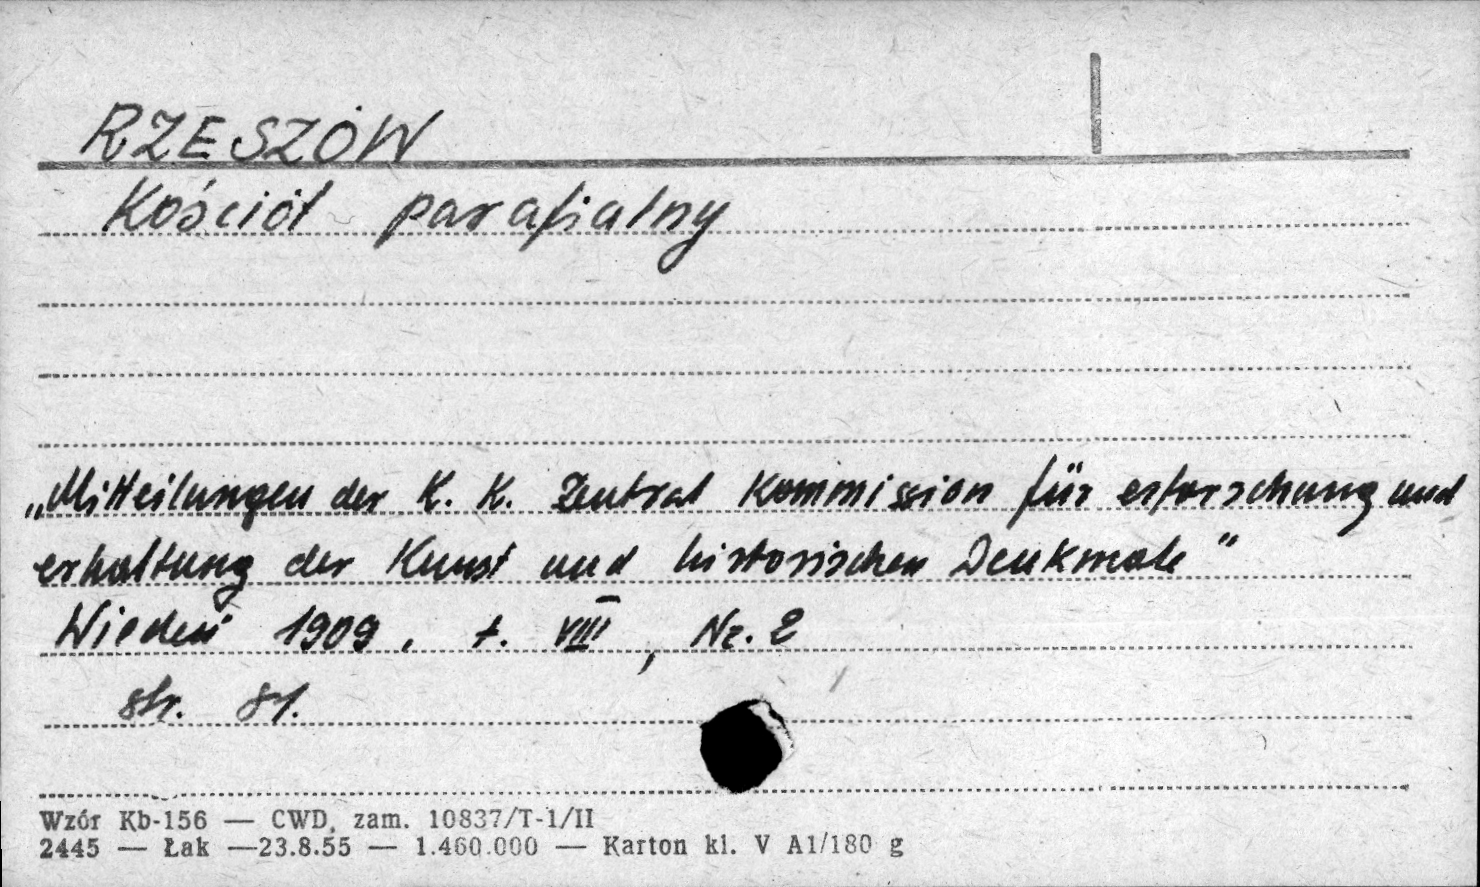 RZESZÓW
Kościół parafialny
„Mitteilungen der K. K. Zentral Kommission für erforschung und
erhaltung der Kunst und historischen Denkmale"
Wiedeń 1909, t. VIII, Nr. 2
str. 81.
Wzór Kb-156 — CWD, zam. 10837/T-1/II
2445 — Łak —23.8.55 — 1.460.000 — Karton kl. V A1/180 g